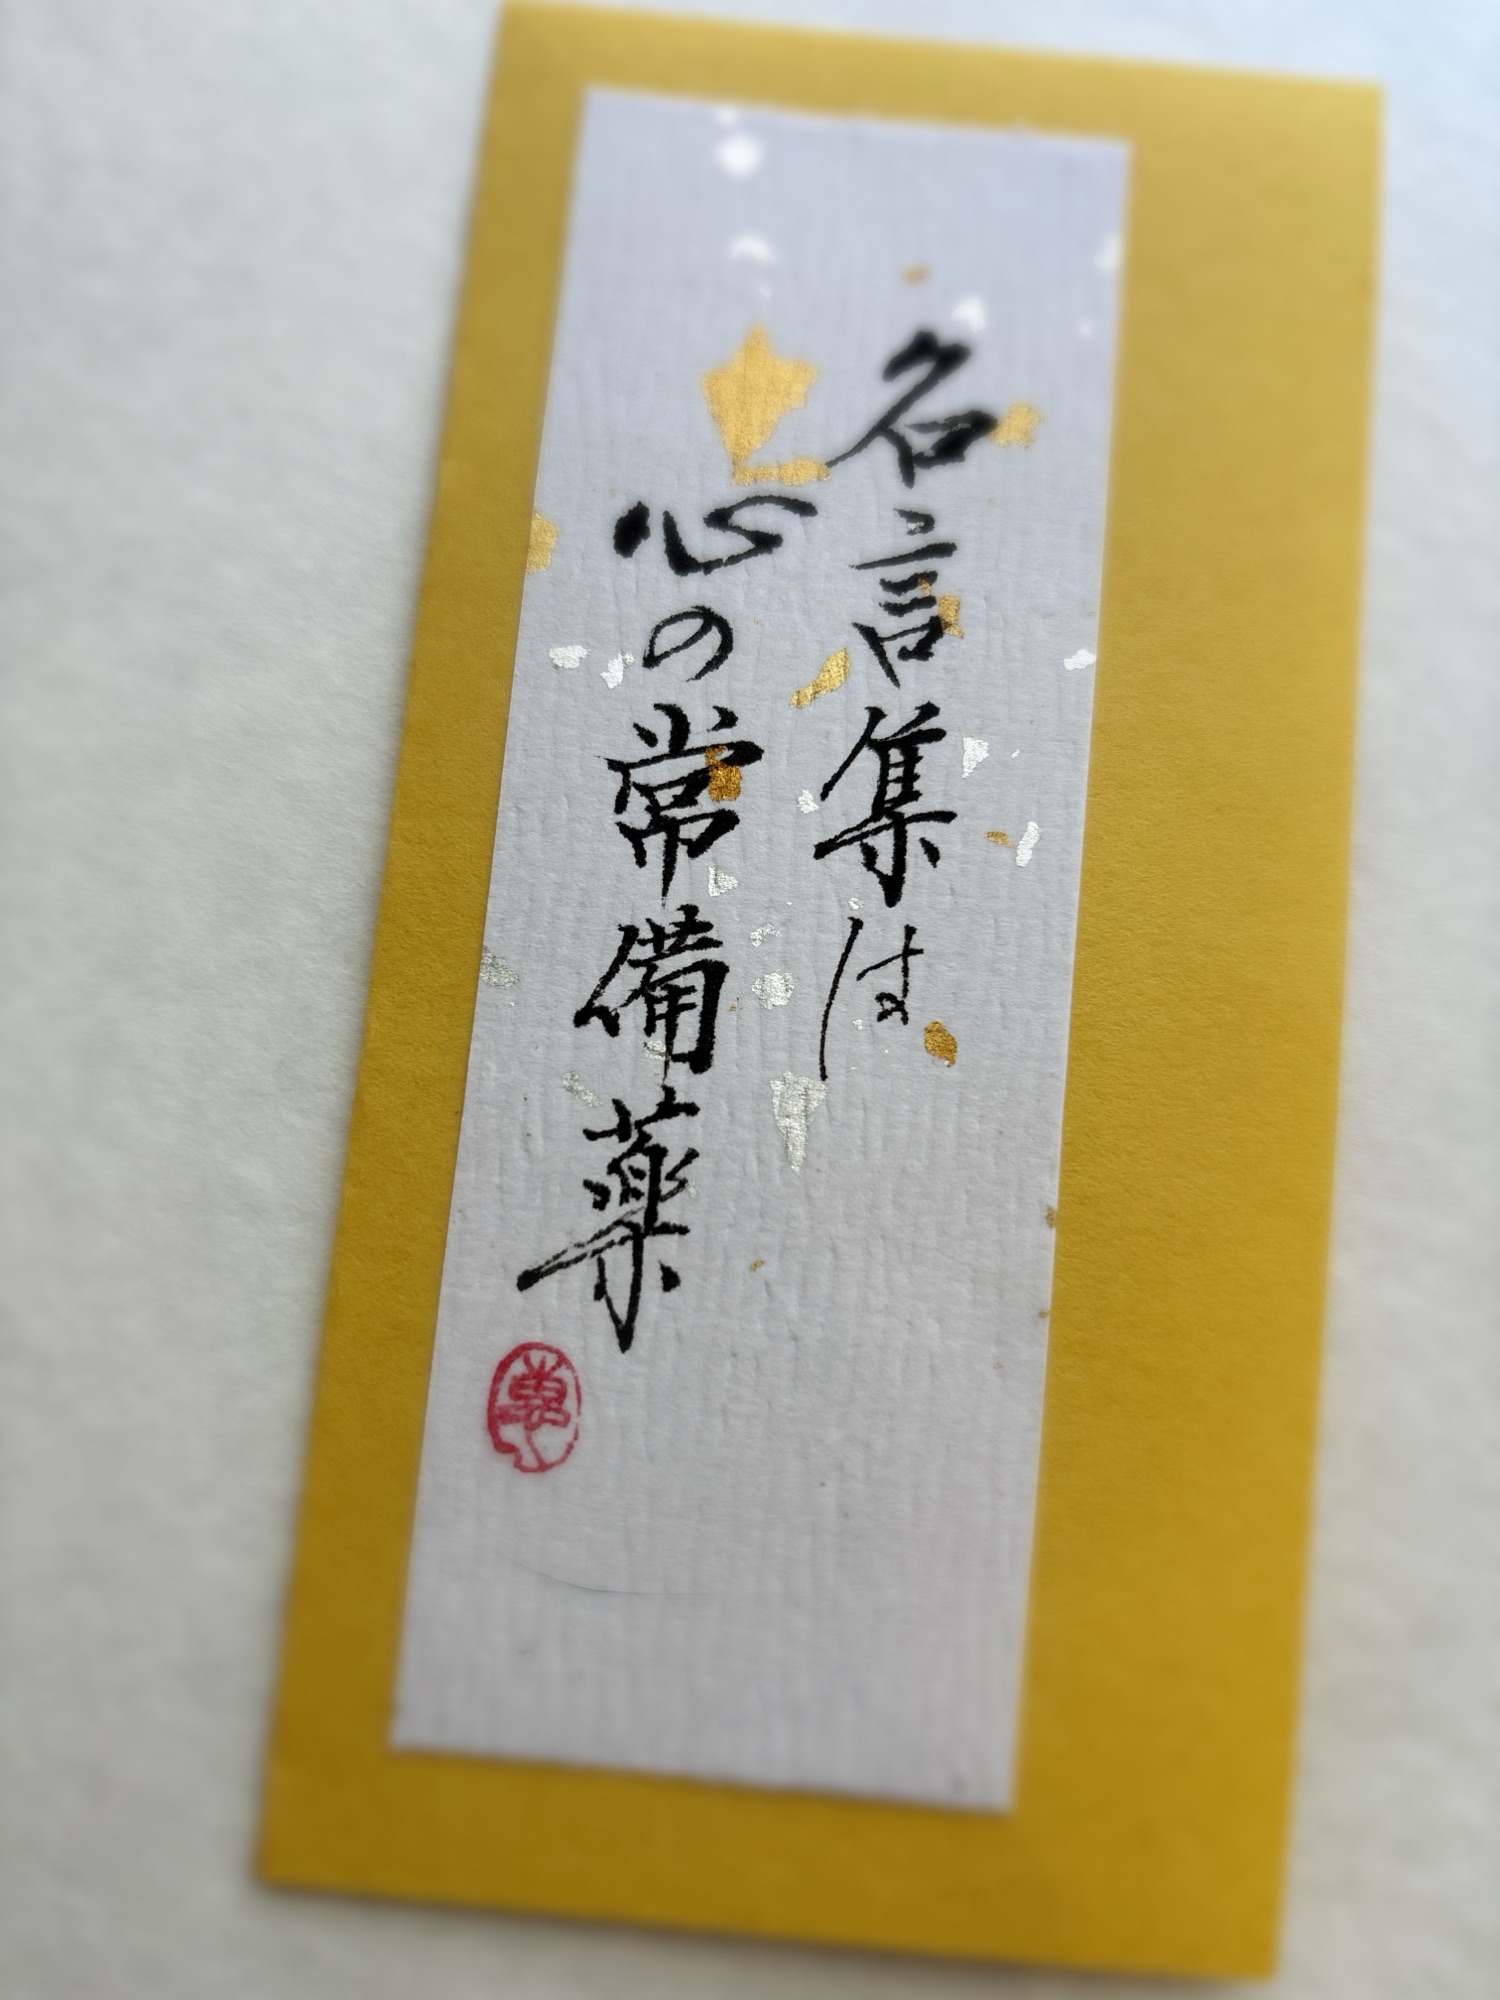 名言集は
心の常備薬